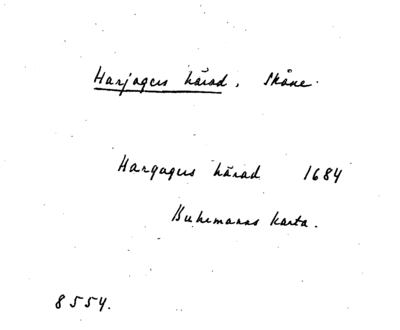 Harjagers härad, Skåne.
Hargagers härad 1684
Buhrmanns karta.
8554.